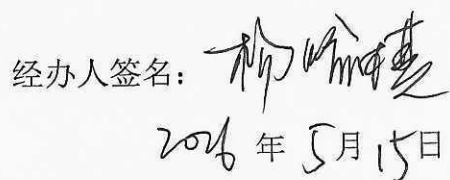 经办人签名：
2026 年 5 月 15 日